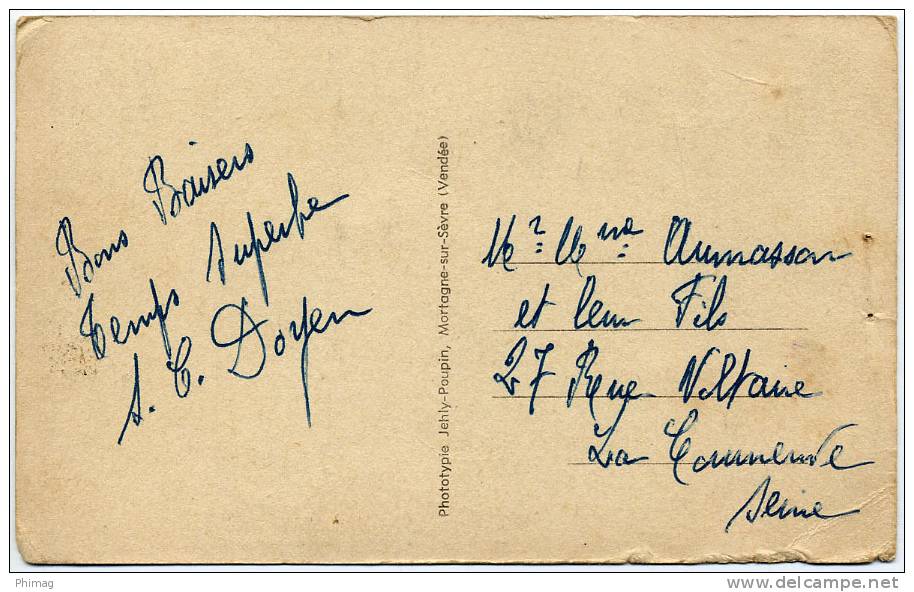 Bons Baisers
Temps superbe
A. C. Doyen
Phototypie Jehly-Poupin, Mortagne-sur-Sèvre (Vendée)
Mr. Mme Aumasson
et leur Fils
27 Rue Voltaire
La Courneuve
Seine
Phimag
www.delcampe.net